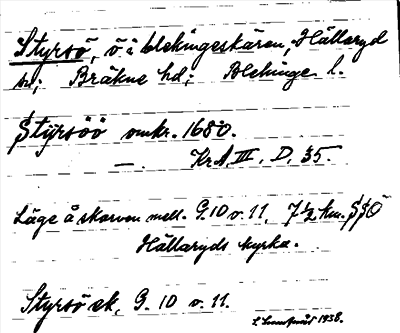 Styrsö, ö i blekingeskären, Hällaryd
sn; Bräkne hd; Blekinge l.
Styrsöö omkr. 1680.
— . Kr.A. III, D, 35.
Läge å skarven mell. G.10 v. 11, 7½ km. SSO
Hällaryds kyrka.
Styrsö ek, G. 10 v. 11.
1938.